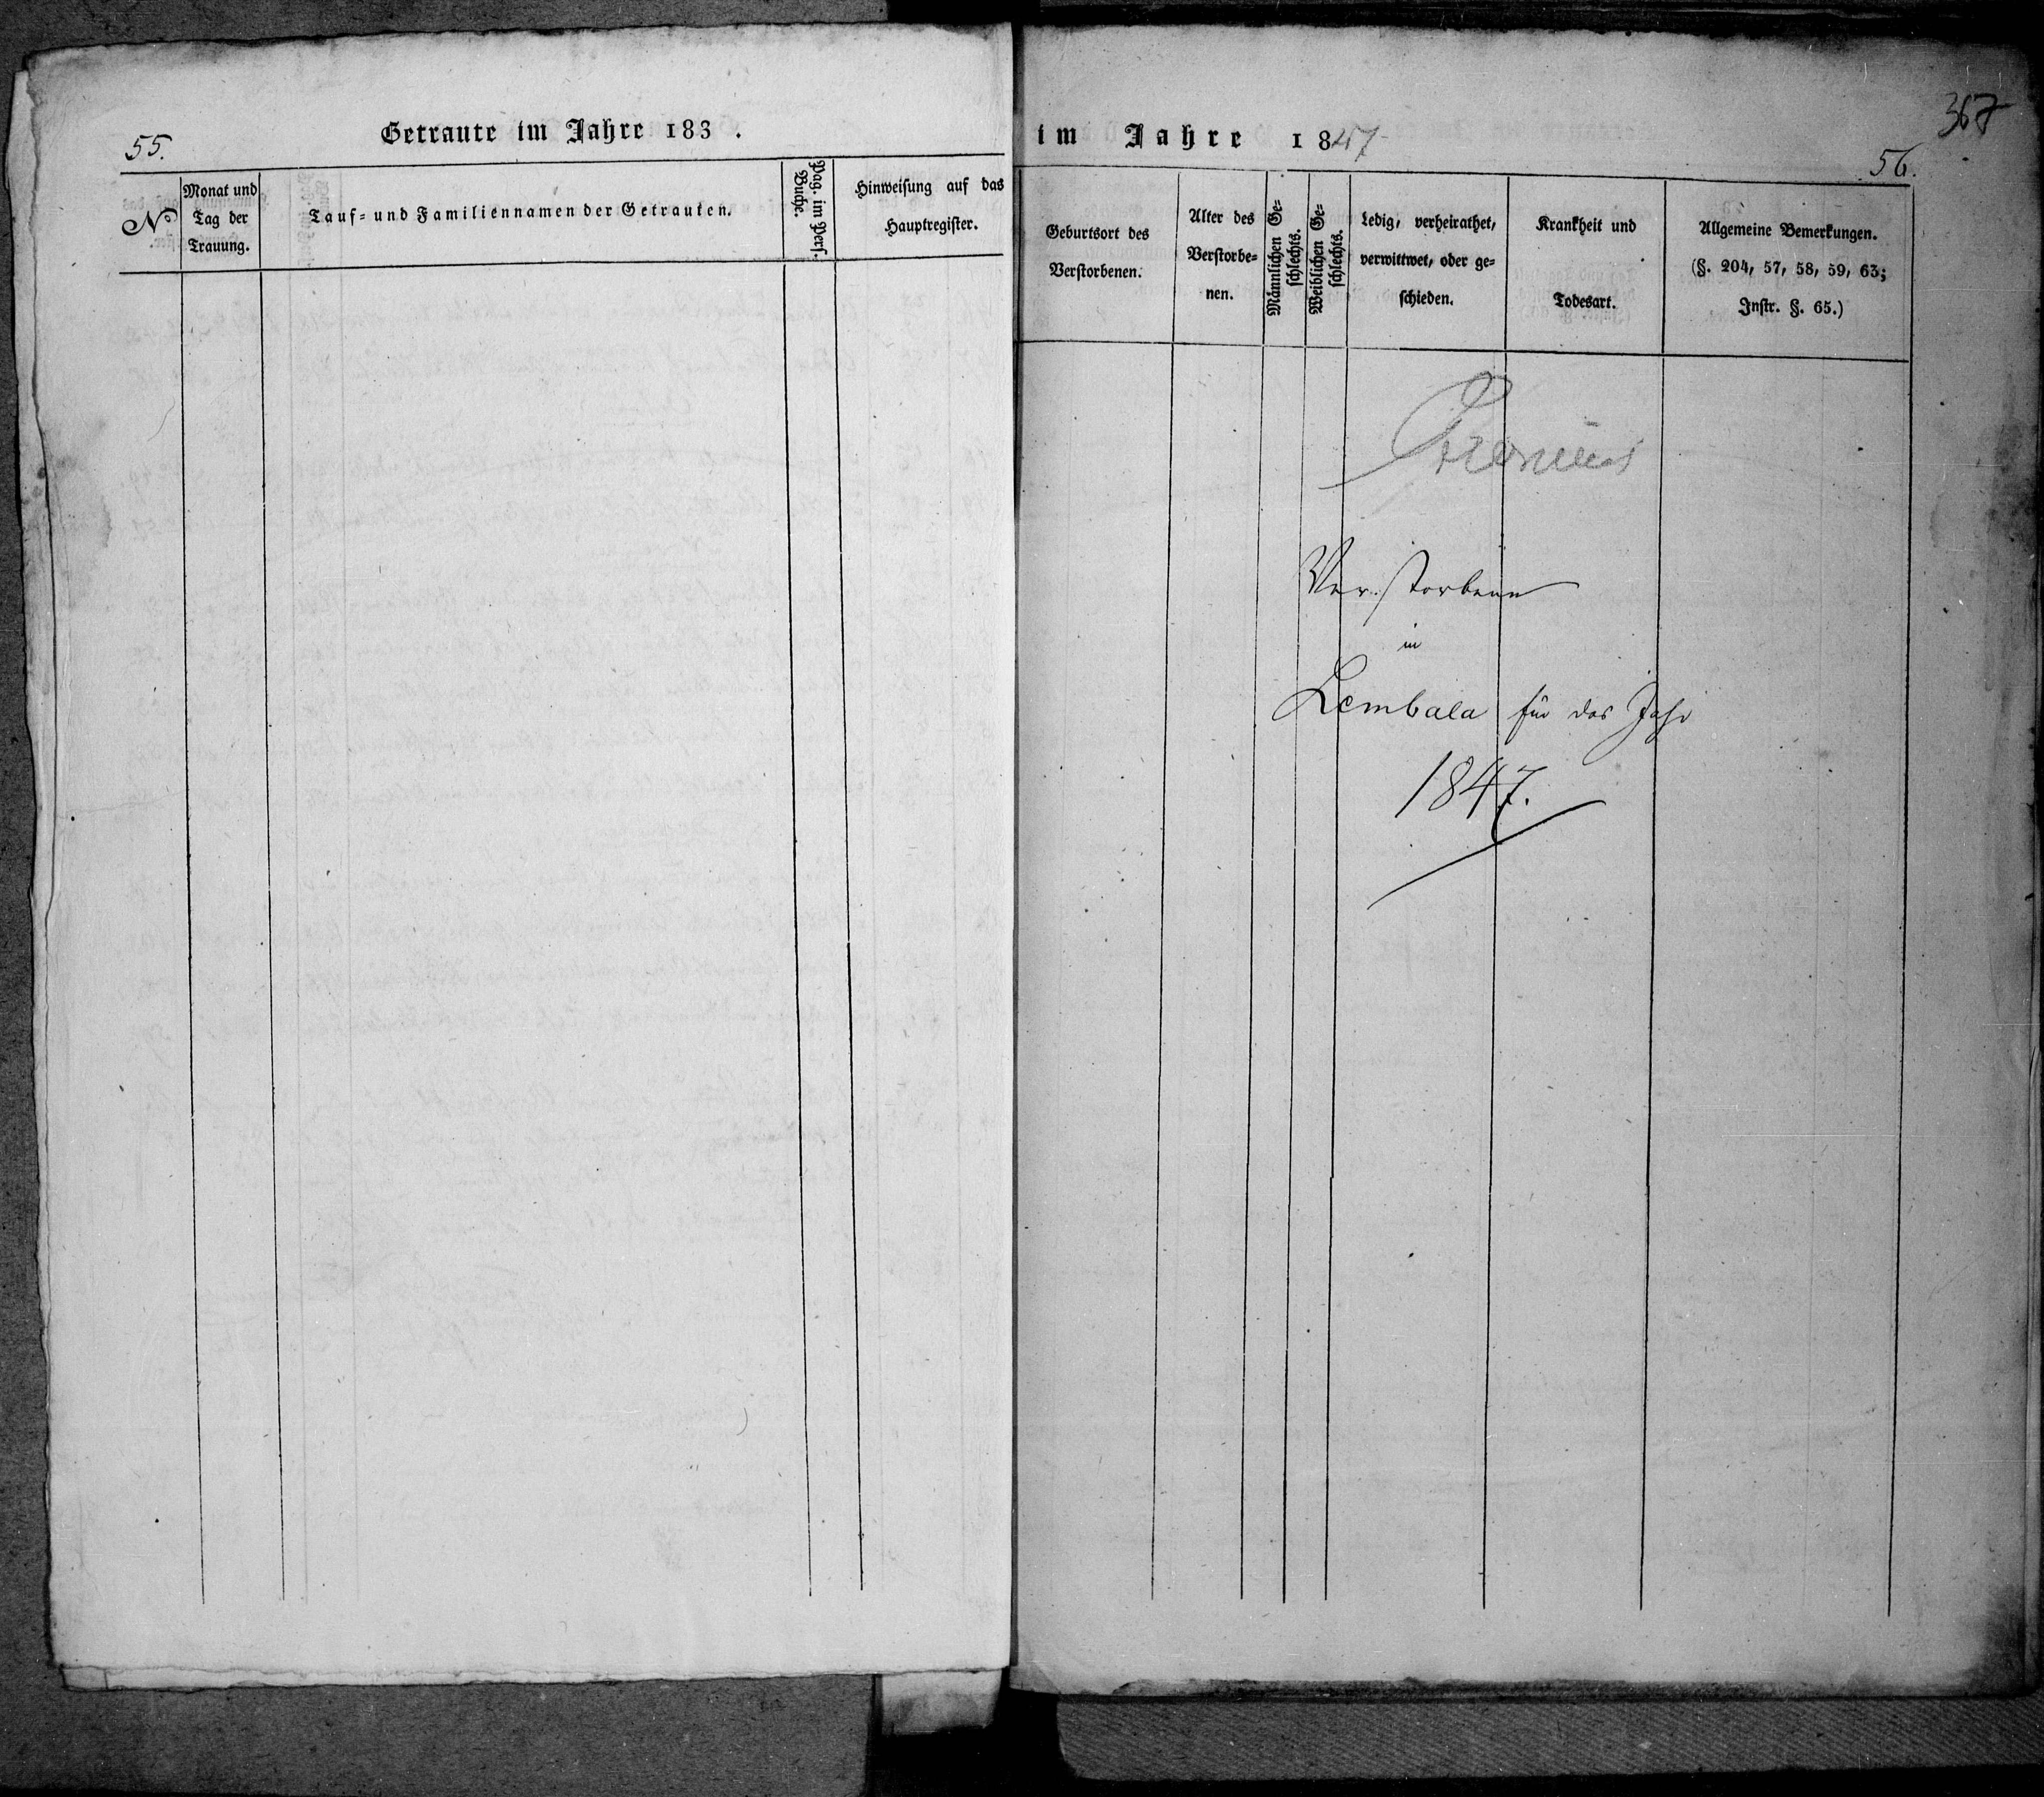 55.
Getraute im Jahre 183 .
No
Monat und
Tag der
Trauung.
Tauf- und Familiennamen der Getrauten.
Pag. im Pers.
Buche.
Hinweisung auf das
Hauptregister.
367
im Jahre 1847
56.
Geburtsort des
Verstorbenen.
Alter des
Verstorbe-
nen.
Männlichen Ge-
schlechts.
Weiblichen Ge-
schlechts.
Ledig, verheirathet,
verwittwet, oder ge-
schieden.
Krankheit und
Todesart.
Allgemeine Bemerkungen.
(§. 204, 57, 58, 59, 63;
Instr. §. 65.)
Verstorbene
in
Lembala für das Jahr
1847.